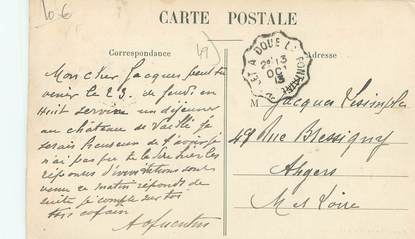 10-6
CARTE POSTALE
Correspondance
49
Adresse
DOUE LA FONTAINE
13
OCT
13
Mon cher Jacques peux tu
venir le 23 de jeudi en
huit servire un déjeuner
au château de je
serais heureuse de t'avoir je
n'ai pas pu te le dire hier les
réponses d'invitations sont
venu ce matin réponds de
suite je compte sur toi
ton copain
M Jacques
49 Rue Bressigny
Angers
M et Loire